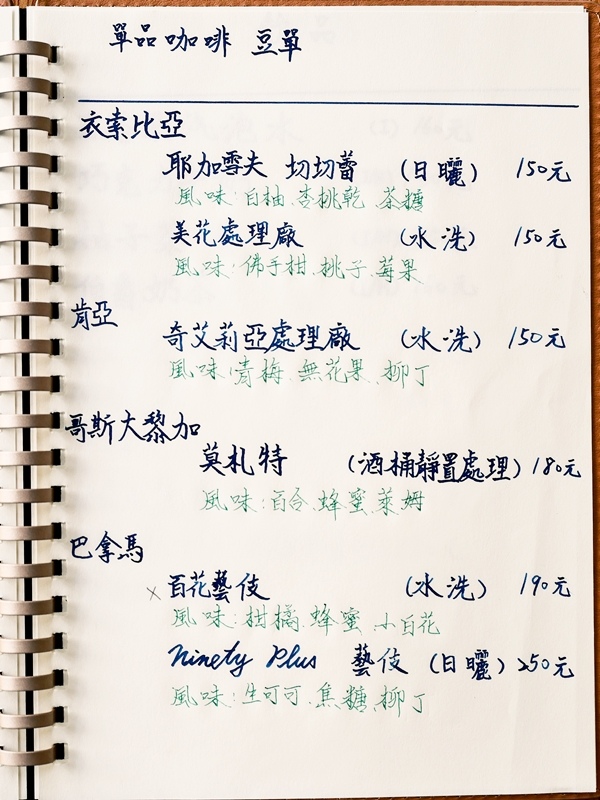 單品咖啡 豆單
衣索比亞
耶加雪夫 切切蕾 (日曬) 150元
風味:白柚.杏桃乾.茶糖
美花處理廠 (水洗) 150元
風味:佛手柑.桃子.莓果
肯亞
奇艾莉亞處理廠 (水洗) 150元
風味:青梅.無花果.柳丁
哥斯大黎加
莫札特 (酒桶靜置處理) 180元
風味:百合.蜂蜜.萊姆
巴拿馬
x 百花藝伎 (水洗) 190元
風味:柑橘.蜂蜜.小白花
Ninety Plus 藝伎 (日曬) 250元
風味:生可可.焦糖.柳丁